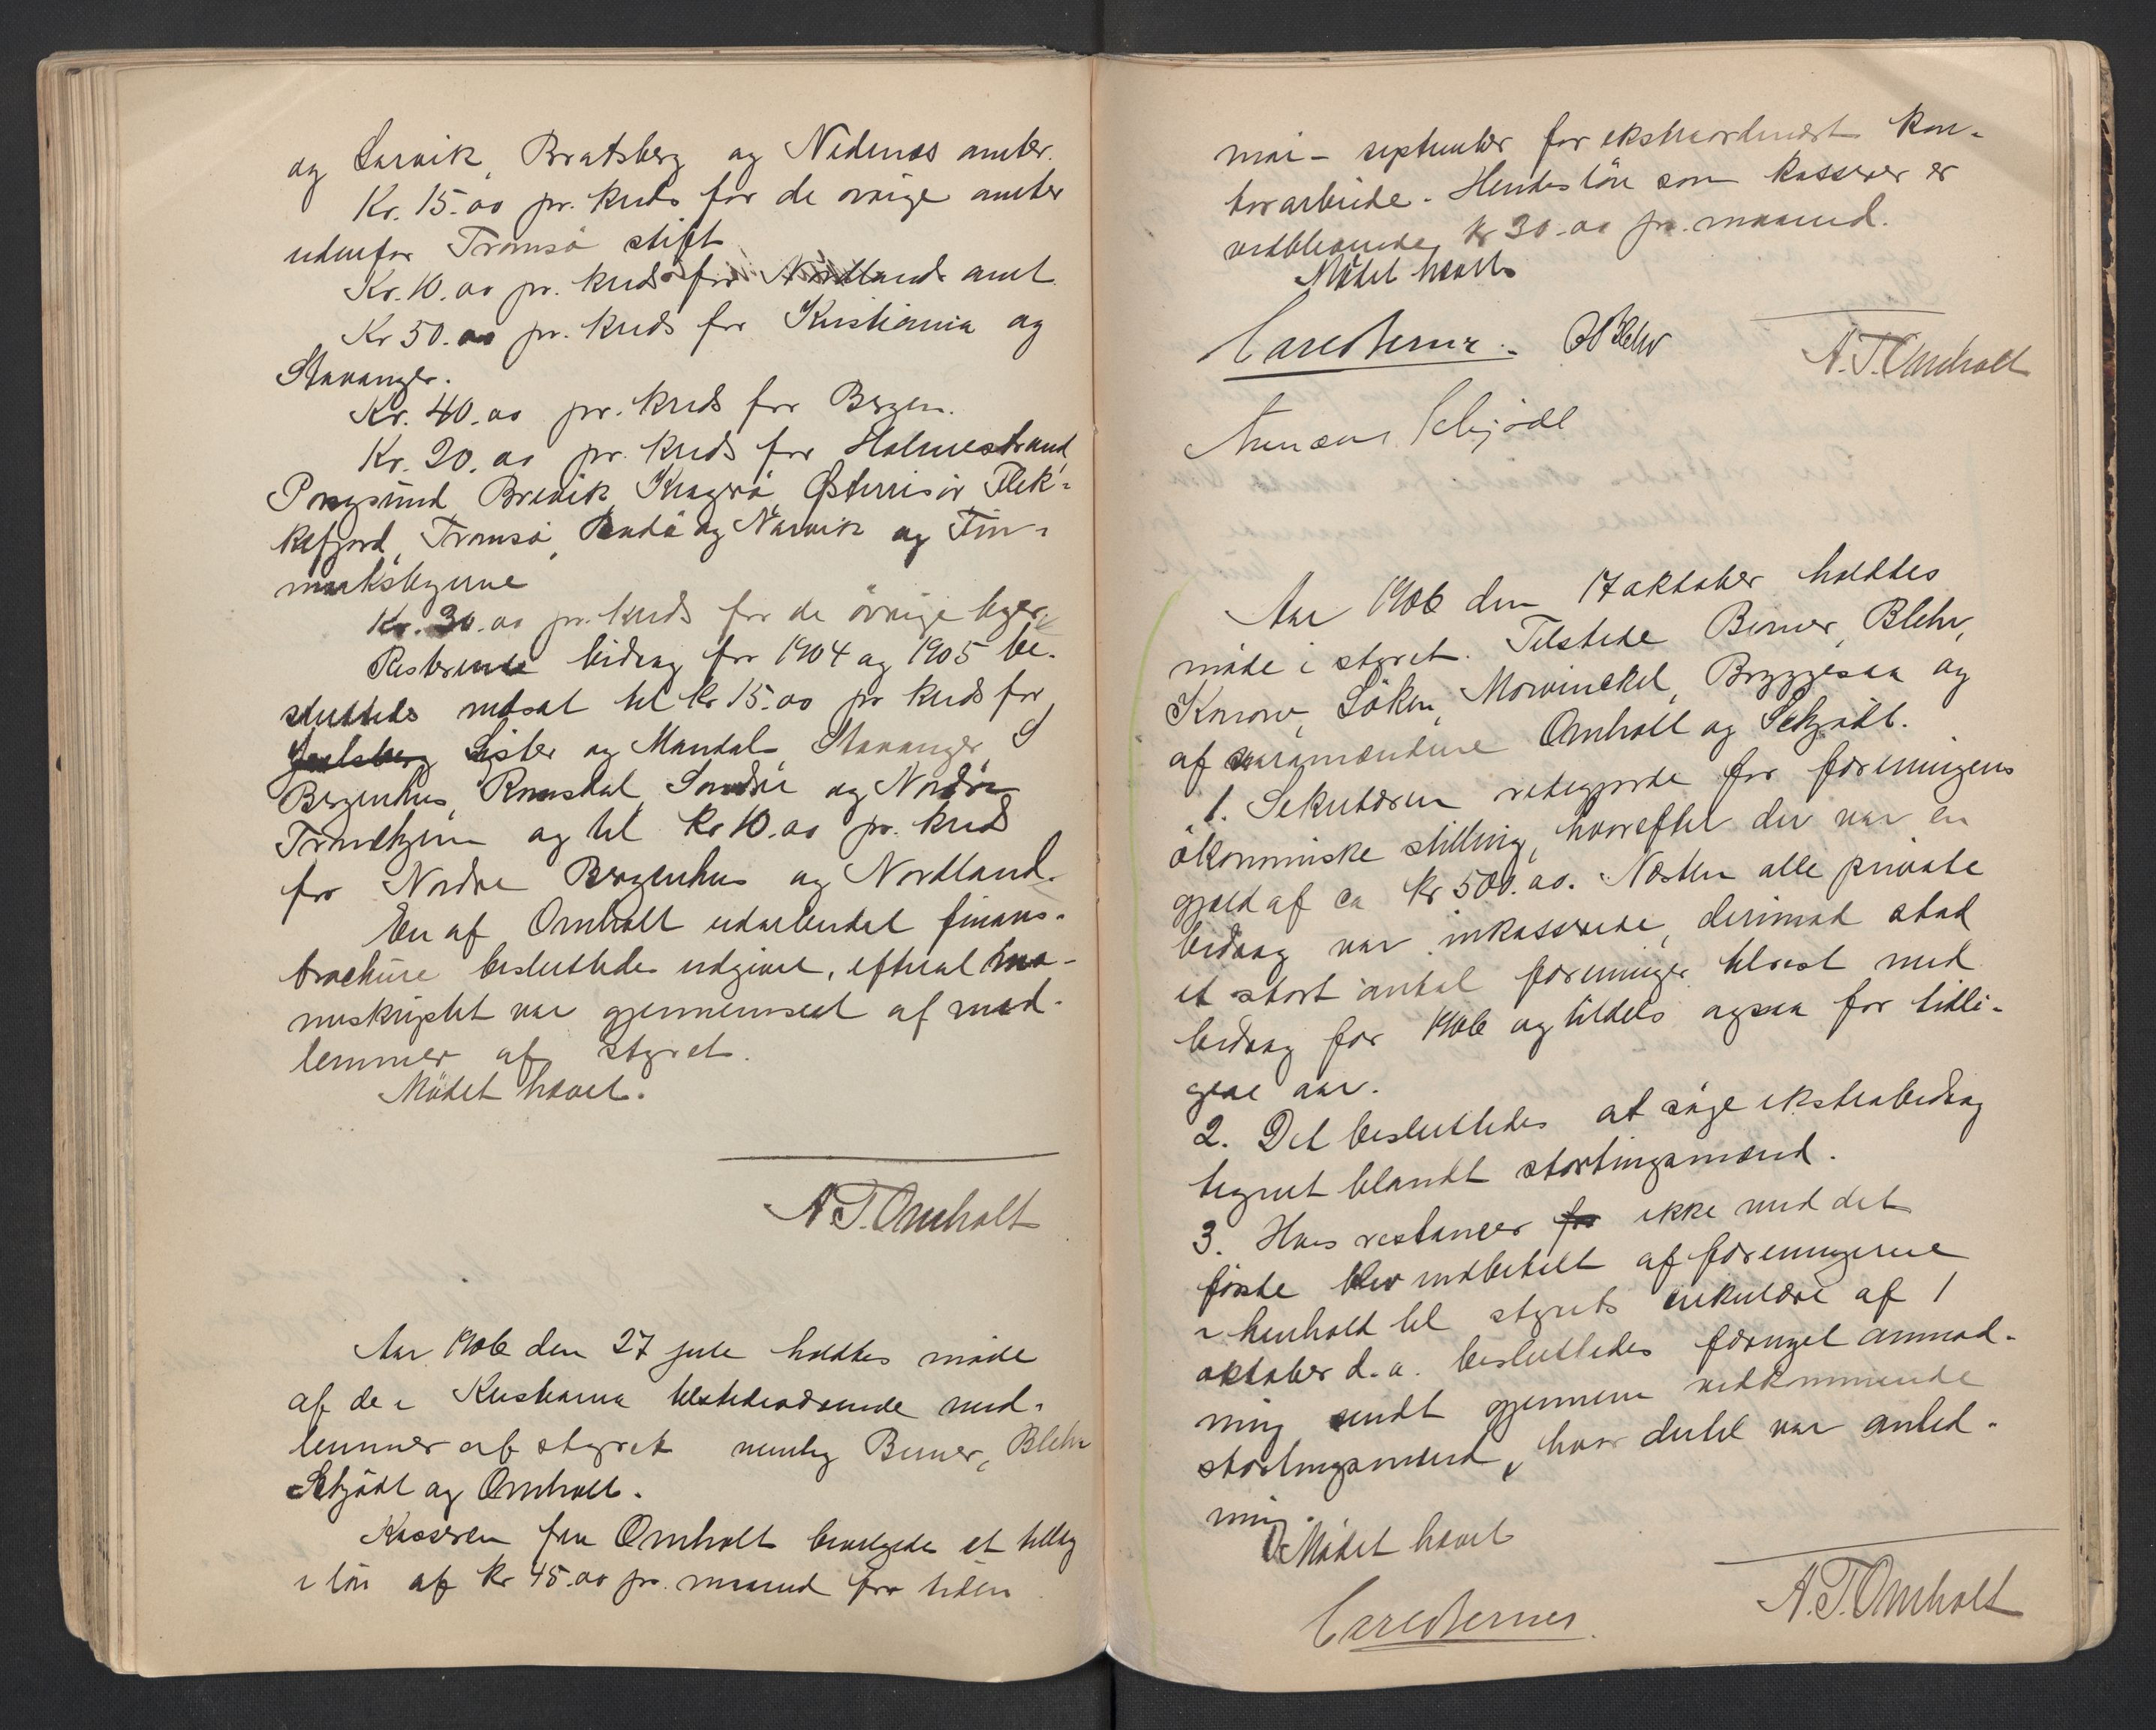 og Larvik, Bratsberg og Nedenes amter.
Kr. 15.00 pr. kreds for de øvrige amter
udenfor Tromsö stift
Kr. 10.00 pr. kreds for Nordlands amt
Kr 50.00 pr. kreds for Kristiania og
Stavanger.
Kr. 40.00 pr. kreds for Bergen.
Kr. 20.00 pr. kreds for Holmestrand,
Porsgrund, Brevik, Kragerö, Østerrisör, Flek-
kefjord, Tromsö, Bodö og Narvik og Fin-
marksbyerne
Kr. 30.00 pr. kreds for de övrige byer.
Resterende bidrag for 1904 og 1905 be-
sluttedes nedsat til kr 15.00 pr kreds for
Jarlsberg Lister og Mandal, Stavanger, S
Bergenhus, Romsdal, Söndre og Nordre
Trondhjem og til kr 10.00 pr. kreds
for Nordre Bergenhus og Nordland.
En af Omholt udarbeidet finans-
brochure besluttedes udgivet, efterat ma-
nuskriptet var gjennemseet af med-
lemmer af styret.
Mödet hævet.
A. T. Omholt
Aar 1906 den 27 juli holdtes möde
af de i Kristiania tilstedeværende med-
lemmer af styret nemlig Berner, Blehr
Schjödt og Omholt.
Kasseren fru Omholt bevilgedes et tillæg
i lön af kr 45.00 pr. maaned for tiden
mai - september for ekstraordinært kon-
torarbeide. Hendes lön som kasserer er
vedblivende kr 30.00 pr. maaned.
Mödet hævet
Carl Berner. O Blehr
A. T. Omholt
Annæus Schjödt
Aar 1906 den 17 oktober holdtes
möde i styret. Tilstede Berner, Blehr,
Konow, Löken, Mowinckel, Bryggesaa og
af varamændene Omholt og Schjödt.
1. Sekretæren redegjorde for foreningens
ökonomiske stilling, hvorefter der var en
gjæld af ca kr 500.00. Næsten alle private
bidrag var inkasserede, derimod stod
et stort antal foreninger tilrest med
bidrag for 1906 og tildels ogsaa for tidli-
gere aar.
2. Det besluttedes at söge ekstrabidrag
tegnet blandt stortingsmænd.
3. Hvis restancer for ikke med det
förste blev indbetalt af foreningerne
i henhold til styrets cirkulære af 1
oktober d. a. besluttedes fornyet anmod-
ning sendt gjennem vedkommende
stortingsmænd, hvor dertil var anled-
ning.
Mödet hævet
Carl Berner
A. T. Omholt